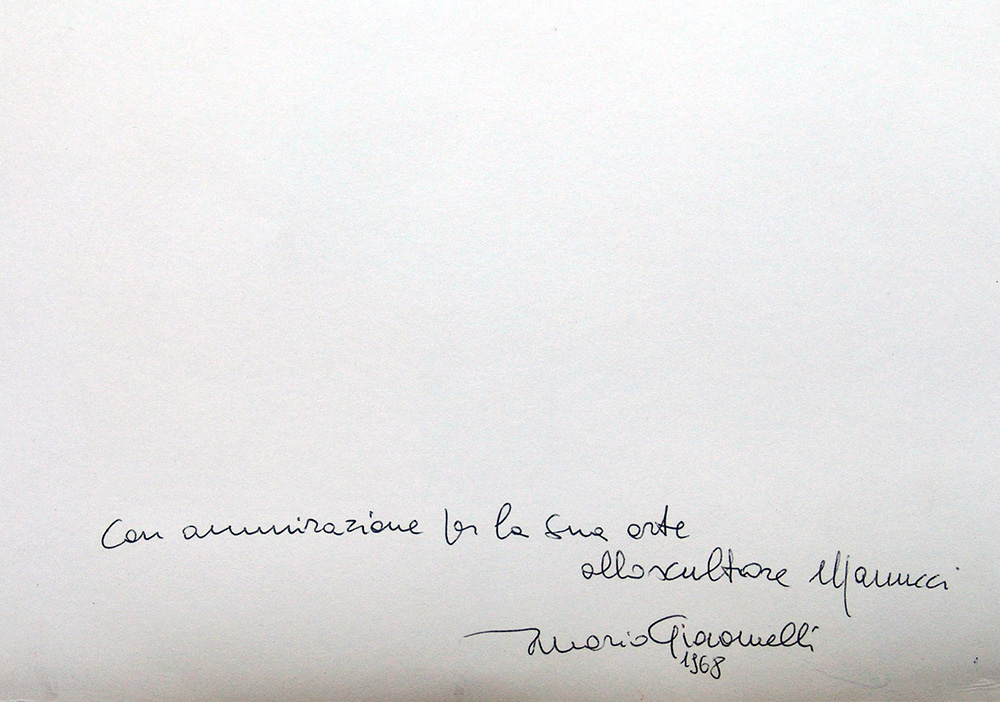 Con ammirazione per la sua arte
allo scultore Mannucci
Mario Giacomelli
1968